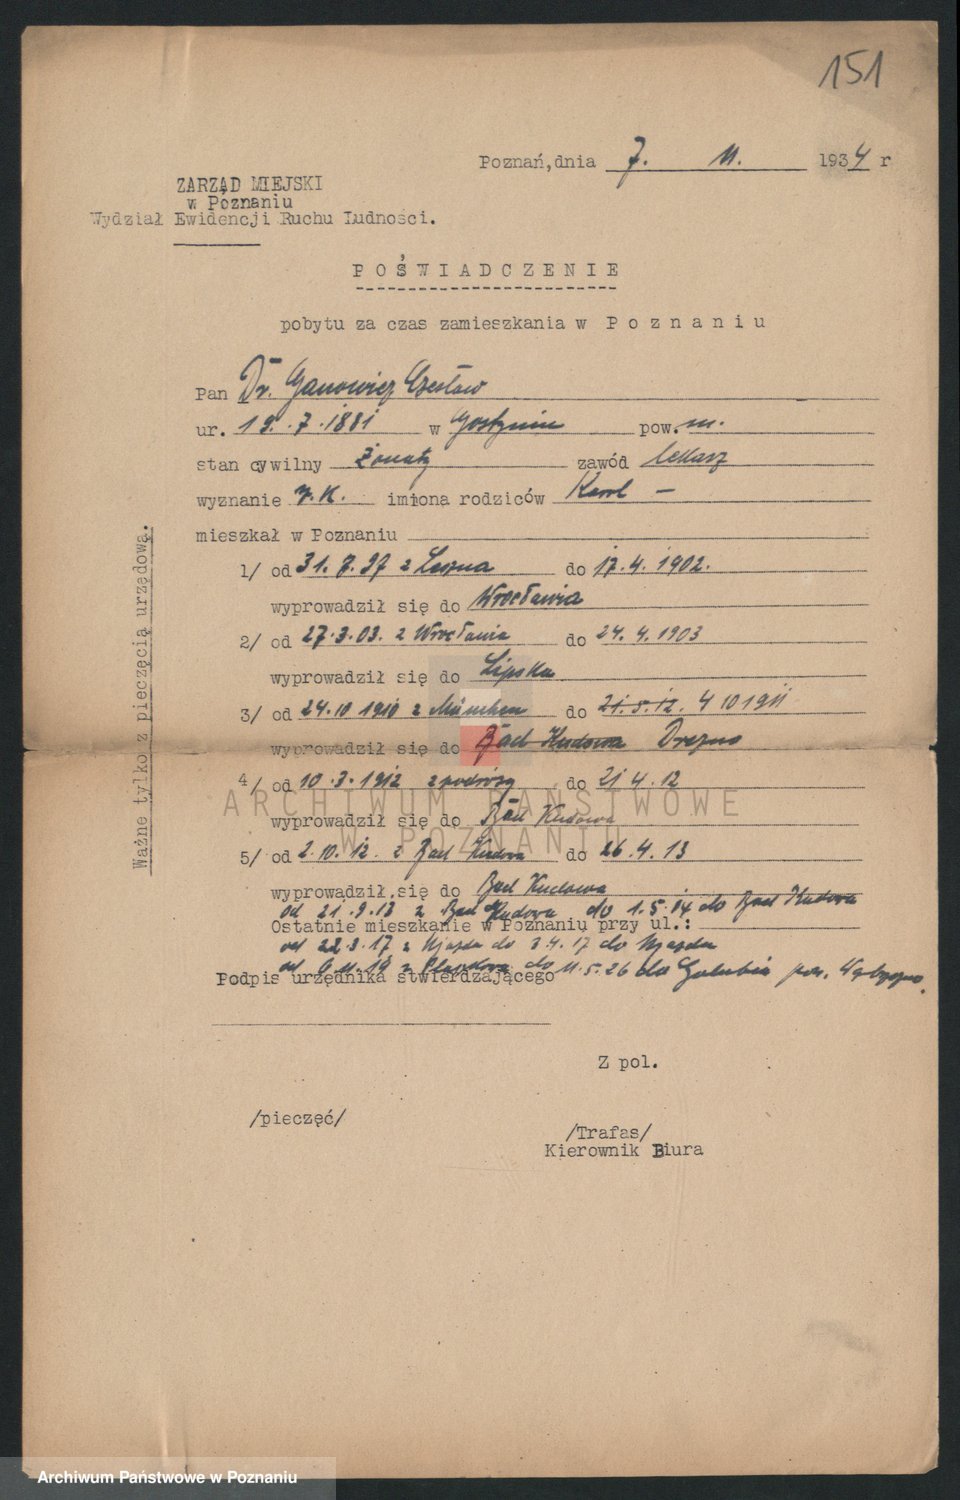 151
Poznań, dnia 7. 11. 1934 r
ZARZĄD MIEJSKI
w Poznaniu
Wydział Ewidencji Ruchu Ludności.
POŚWIADCZENIE
pobytu za czas zamieszkania w Poznaniu
Pan Dr. Ganowicz Czesław
ur. 19. 7. 1881 w Gostyniu pow. m.
stan cywilny żonaty zawód lekarz
wyznanie r. K. imiona rodziców Karol —
mieszkał w Poznaniu
1/ od 31. 7. 97 z Leszna do 17. 4. 1902.
wyprowadził się do Wrocławia
2/ od 27. 3. 03. z Wrocławia do 24. 4. 1903
wyprowadził się do Lipska
3/ od 24. 10 1910 z München do 21. 5. 12. 4 10 1911
wyprowadził się do Bad Kudowa Drezno
4/ od 10. 3. 1912 z podróży do 21 4. 12
wyprowadził się do Bad Kudowa
5/ od 2. 10. 12. z Bad Kudowa do 26. 4. 13
wyprowadził się do Bad Kudowa
od 21. 9. 13 z Bad Kudowa do 1. 5. 14 do Bad Kudowa
Ostatnie mieszkanie w Poznaniu przy ul.:
od 22. 3. 17 z Ujazda do 3. 4. 17 do Ujazda
od 6 11. 19 z do 11. 5. 26 do Golubia pow. Wąbrzeźno.
Podpis urzędnika stwierdzającego
Z pol.
/pieczęć/
/Trafas/
Kierownik Biura
Ważne tylko z pieczęcią urzędową.
ARCHIWUM PAŃSTWOWE
W POZNANIU
Archiwum Państwowe w Poznaniu